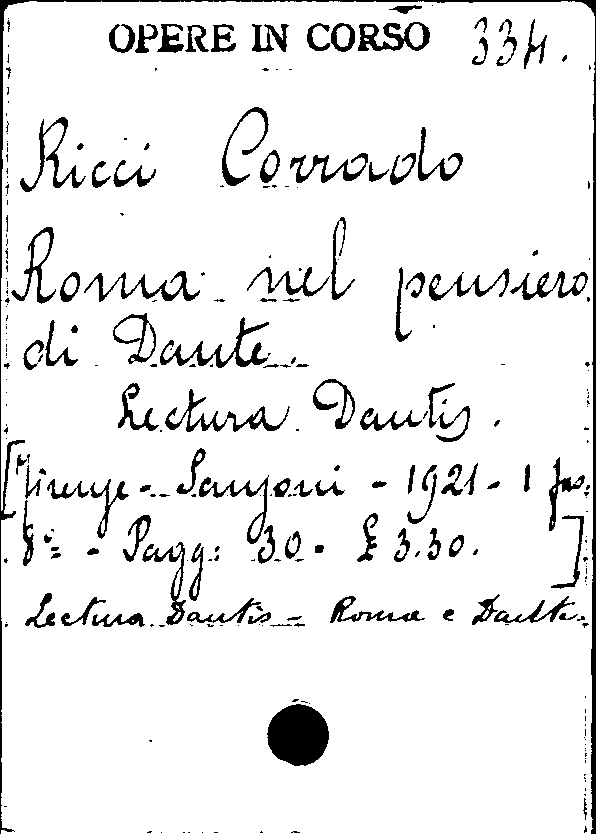 OPERE IN CORSO 334.
Ricci Corrado
Roma nel pensiero
di Dante.
Lectura Dantis.
[Firenze - Sansoni - 1921 - 1 fas.
8º = - Pagg: 30 - £ 3.30. ]
Lectura Dantis - Roma e Dante.